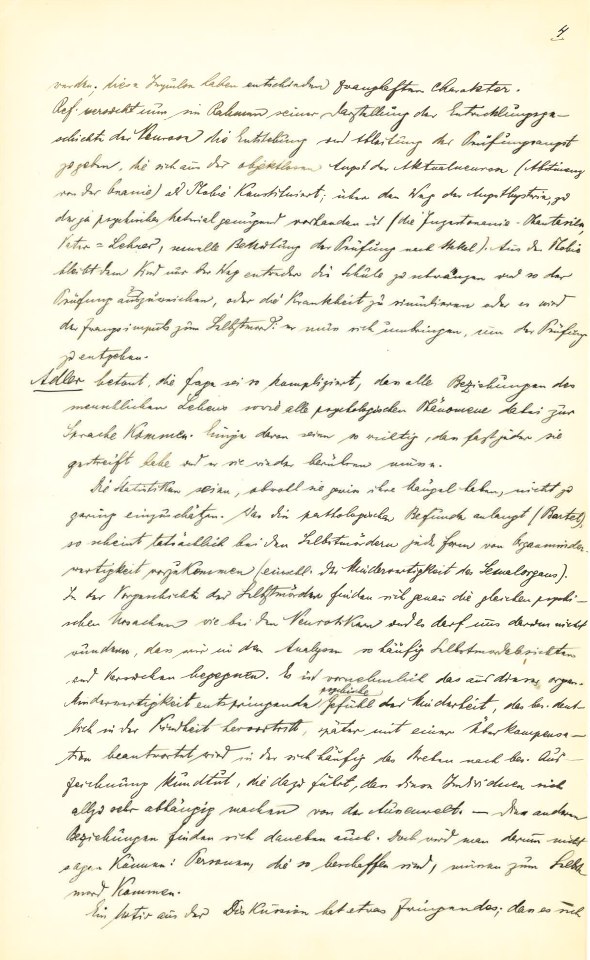 4
werden; diese Impulse haben entschieden zwanghaften Charakter.
Ref. versucht nun im Rahmen seiner Darstellung der Entwicklungsge-
schichte der Neurose die Entstehung und Ableitung der Prüfungsangst
zu geben, die sich aus der objektlosen Angst der Aktualneurose (Abstinenz
von der Onanie) als Phobie konstituiert; über den Weg der Angsthysterie, zu
der ja psychisches Material genügend vorhanden ist (die Phantasien,
Vater = Lehrer, sexuelle Bedeutung der Prüfung nach Stekel). Aus der Phobie
bleibt dem Kind nur der Weg entweder die Schule zu schwänzen und so der
Prüfung auszuweichen, oder die Krankheit zu simulieren oder es wird
der Zwangsimpuls zum Selbstmord: er muss sich umbringen, um der Prüfung
zu entgehen.
Adler betont, die Frage sei so kompliziert, dass alle Beziehungen des
menschlichen Lebens sowie alle psychologischen Phänomene dabei zur
Sprache kommen. Einige davon seien so wichtig, dass fast jeder sie
gestreift habe und er sie wieder berühren müsse.
Die Statistiken seien, obwohl sie ihre Mängel haben, nicht zu
gering einzuschätzen. Was die pathologischen Befunde anlangt (Bartel),
so scheint tatsächlich bei den Selbstmördern jede Form von Organminder-
wertigkeit vorzukommen (einschl. der Minderwertigkeit des Sexualorgans).
In der Vorgeschichte der Selbstmörder finden sich genau die gleichen psychi-
schen Ursachen wie bei den Neurotikern und es darf uns darum nicht
wundern, dass wir in den Analysen so häufig Selbstmordabsichten
und Versuchen begegnen. Es ist vornehmlich das aus dieser organ.
Minderwertigkeit entspringende psychische Gefühl der Minderheit, das bes. deut-
lich in der Kindheit hervortritt, später mit einer Überkompensa-
tion beantwortet wird in der sich häufig das Streben nach bes. Aus-
zeichnung kundtut, die dazu führt, dass diese Individuen sich
allzu sehr abhängig machen von der Aussenwelt. — Die anderen
Beziehungen finden sich daneben auch. Doch wird man darum nicht
sagen können: Personen, die so beschaffen sind, müssen zum Selbst-
mord kommen.
Ein Motiv aus der Diskussion hat etwas Zwingendes; dass es sich